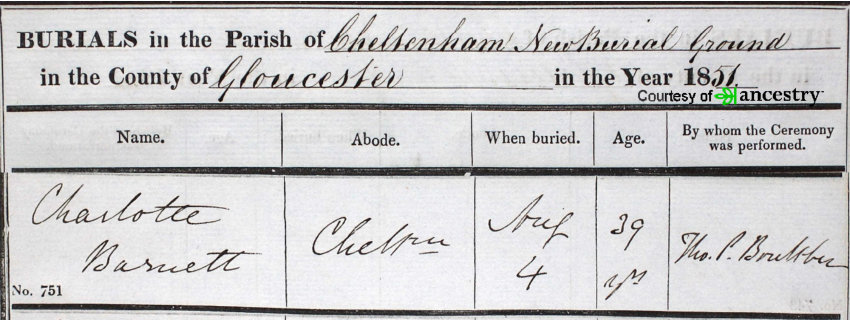 BURIALS in the Parish of Cheltenham New Burial Ground
in the County of Gloucester in the Year 1851.
Courtesy of ancestry
Name. Abode. When buried. Age. By whom the Ceremony was performed.
Charlotte Barnett
Cheltm
Aug 4
39 yrs
Tho. P. Boultbee
No. 751